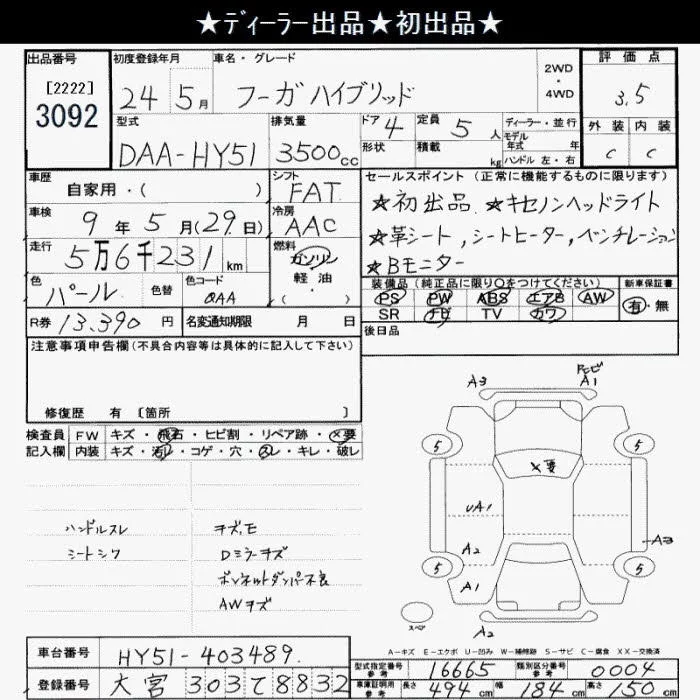 ★ディーラー出品★初出品★
出品番号 初度登録年月 車名・グレード 2WD・4WD 評価点
[2222]
3092
24年5月 フーガハイブリッド 3.5
型式 排気量 ドア 定員 ディーラー・並行 外装 内装
DAA-HY51 3500cc 4 5人 モデル年式 年 C C
形状 積載 kg ハンドル 左・右
車歴 シフト セールスポイント(正常に機能するものに限ります)
自家用・( ) FAT ★初出品 ★キセノンヘッドライト
車検 冷房
9年5月(29日) AAC ★革シート,シートヒーター,ベンチレーション
走行 燃料
5万6千231km ガソリン ★Bモニター
軽油・( )
色 色替 色コード 装備品(純正品に限り○をつけてください) 新車保証書
パール QAA PS PW ABS エアB AW 有・無
SR ナビ TV カワ
R券 13,390円 名変通知期限 月 日 後日品
注意事項申告欄(不具合内容等は具体的に記入して下さい)
修復歴 有 [箇所 ]
検査員 FW キズ・飛石・ヒビ割・リペア跡・×要
記入欄 内装 キズ・汚レ・コゲ・穴・スレ・キレ・破レ
ハンドルスレ
シートシワ
キズ,モ
Dミラーキズ
ボンネットダンパー不良
AWキズ
A3
A1
5 5
×要
UA1
A2
A3
5 5
A1
スペア
A2
A-キズ E-エクボ U-凹み W-補修跡 S-サビ C-腐食 XX-交換済
車台番号 HY51-403489
登録番号 大宮303て8832
型式指定番号 参考 16665 類別区分番号 参考 0004
車庫証明用 参考 長さ 494cm 幅 184cm 高さ 150cm